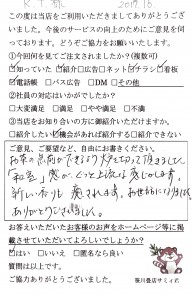 K.T.様 2017.10.
この度は当店をご利用いただきましてありがとうござ
いました。今後のサービスの向上のためにご意見を伺
っております。どうぞご協力をお願いいたします。
①今回何を見てご注文されましたか?(複数可)
□知っていた □紹介 □広告 □ネット □チラシ □看板
□電話帳 □バス広告 □DM □その他
②社員の対応はいかがでしたか?
□大変満足 □満足 □やや不満 □不満
③当店をお知り合いの方に御紹介いただけますか。
□紹介したい □機会があれば紹介する □紹介できない
ご意見、ご要望など、自由にお書きください。
「和室」感が ぐっと
新しい香りも 癒されます。
ありがとうございました。
お答えいただいたお客様のお声をホームページ等に掲
載させていただいてよろしいでしょうか?
□はい □いいえ □匿名なら良い
質問は以上です。
ご協力ありがとうございました。
笹川畳店サミィ君